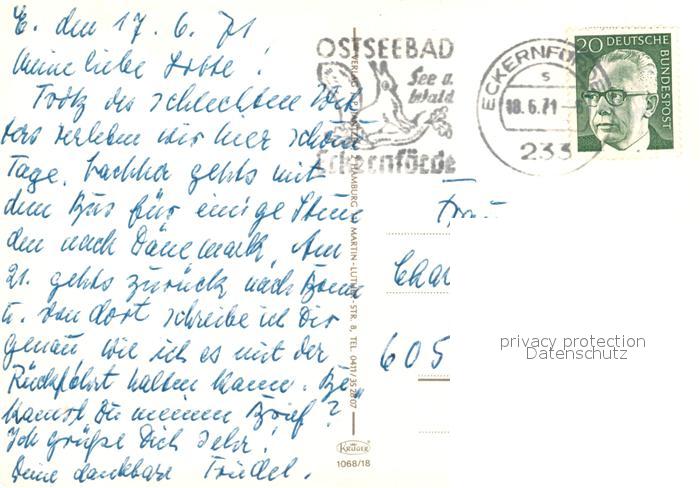 E. den 17. 6. 71
Meine liebe Lotte!
Trotz des schlechten Wet-
ters verleben wir hier schöne
Tage. Nachher gehts mit
dem Bus für einige Stun
den nach Dänemark. Am
21. gehts zurück nach Bonn
u. von dort schreibe ich Dir
genau wie ich es mit der
Rückfahrt halten kann. Be-
kamst Du meinen Brief?
Ich grüße Dich sehr!
Deine dankbare Friedel.
OSTSEEBAD
See u.
Wald
Eckernförde
ECKERNFÖRDE
s
18.6.71
233
20 DEUTSCHE
BUNDESPOST
HAMBURG
MARTIN-LUTHER-STR. 8, TEL. 0411/352807
KRÜGER
1068/18
Frau
Char
605
privacy protection
Datenschutz